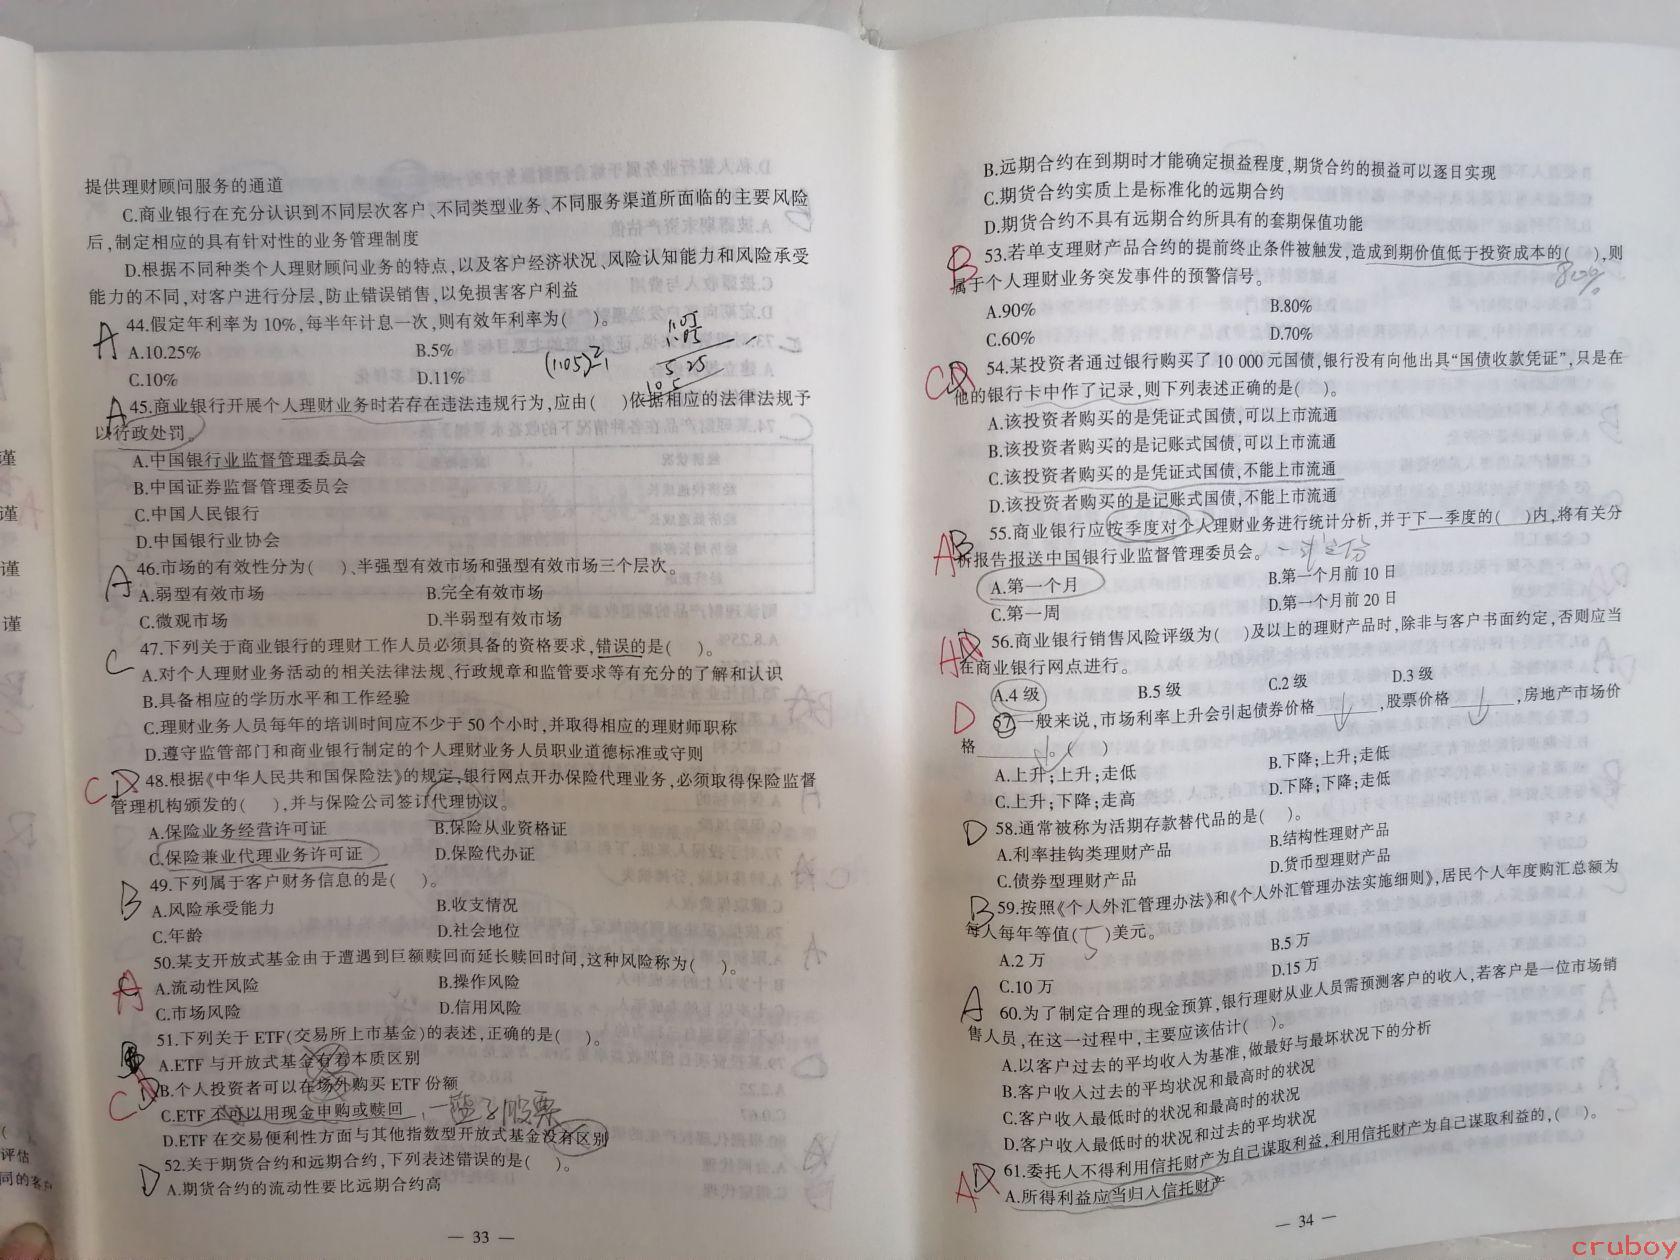 提供理财顾问服务的通道
C.商业银行在充分认识到不同层次客户、不同类型业务、不同服务渠道所面临的主要风险
后,制定相应的具有针对性的业务管理制度
D.根据不同种类个人理财顾问业务的特点,以及客户经济状况、风险认知能力和风险承受
能力的不同,对客户进行分层,防止错误销售,以免损害客户利益
A 44.假定年利率为10%,每半年计息一次,则有效年利率为( )。
A.10.25% B.5%
C.10% D.11%
(1.05)²-1
1.05
1.05
5 25
10 5
A 45.商业银行开展个人理财业务时若存在违法违规行为,应由( )依据相应的法律法规予
以行政处罚。
A.中国银行业监督管理委员会
B.中国证券监督管理委员会
C.中国人民银行
D.中国银行业协会
A 46.市场的有效性分为( )、半强型有效市场和强型有效市场三个层次。
A.弱型有效市场 B.完全有效市场
C.微观市场 D.半弱型有效市场
C 47.下列关于商业银行的理财工作人员必须具备的资格要求,错误的是( )。
A.对个人理财业务活动的相关法律法规、行政规章和监管要求等有充分的了解和认识
B.具备相应的学历水平和工作经验
C.理财业务人员每年的培训时间应不少于50个小时,并取得相应的理财师职称
D.遵守监管部门和商业银行制定的个人理财业务人员职业道德标准或守则
C D 48.根据《中华人民共和国保险法》的规定,银行网点开办保险代理业务,必须取得保险监督
管理机构颁发的( ),并与保险公司签订代理协议。
A.保险业务经营许可证 B.保险从业资格证
C.保险兼业代理业务许可证 D.保险代办证
B 49.下列属于客户财务信息的是( )。
A.风险承受能力 B.收支情况
C.年龄 D.社会地位
50.某支开放式基金由于遭遇到巨额赎回而延长赎回时间,这种风险称为( )。
A A.流动性风险 B.操作风险
C.市场风险 D.信用风险
51.下列关于ETF(交易所上市基金)的表述,正确的是( )。
A.ETF与开放式基金有着本质区别
C B.个人投资者可以在场外购买ETF份额
C.ETF不可以用现金申购或赎回 ,一篮子股票
D.ETF在交易便利性方面与其他指数型开放式基金没有区别
52.关于期货合约和远期合约,下列表述错误的是( )。
D A.期货合约的流动性要比远期合约高
— 33 —
B.远期合约在到期时才能确定损益程度,期货合约的损益可以逐日实现
C.期货合约实质上是标准化的远期合约
D.期货合约不具有远期合约所具有的套期保值功能
B 53.若单支理财产品合约的提前终止条件被触发,造成到期价值低于投资成本的( ),则
属于个人理财业务突发事件的预警信号。 80%
A.90% B.80%
C.60% D.70%
C 54.某投资者通过银行购买了10 000元国债,银行没有向他出具“国债收款凭证”,只是在
他的银行卡中作了记录,则下列表述正确的是( )。
A.该投资者购买的是凭证式国债,可以上市流通
B.该投资者购买的是记账式国债,可以上市流通
C.该投资者购买的是凭证式国债,不能上市流通
D.该投资者购买的是记账式国债,不能上市流通
A B 55.商业银行应按季度对个人理财业务进行统计分析,并于下一季度的( )内,将有关分
析报告报送中国银行业监督管理委员会。
A.第一个月 B.第一个月前10日
C.第一周 D.第一个月前20日
A D 56.商业银行销售风险评级为( )及以上的理财产品时,除非与客户书面约定,否则应当
在商业银行网点进行。
A.4级 B.5级 C.2级 D.3级
D 57.一般来说,市场利率上升会引起债券价格____↓____,股票价格____↓____,房地产市场价
格____↓____。( )
A.上升;上升;走低 B.下降;上升;走低
C.上升;下降;走高 D.下降;下降;走低
D 58.通常被称为活期存款替代品的是( )。
A.利率挂钩类理财产品 B.结构性理财产品
C.债券型理财产品 D.货币型理财产品
B 59.按照《个人外汇管理办法》和《个人外汇管理办法实施细则》,居民个人年度购汇总额为
每人每年等值( 5 )美元。
A.2万 B.5万
C.10万 D.15万
A 60.为了制定合理的现金预算,银行理财从业人员需预测客户的收入,若客户是一位市场销
售人员,在这一过程中,主要应该估计( )。
A.以客户过去的平均收入为基准,做最好与最坏状况下的分析
B.客户收入过去的平均状况和最高时的状况
C.客户收入最低时的状况和最高时的状况
D.客户收入最低时的状况和过去的平均状况
A D 61.委托人不得利用信托财产为自己谋取利益,利用信托财产为自己谋取利益的,( )。
A.所得利益应当归入信托财产
— 34 —
谨
谨
谨
谨
评估
同的客户
cruboy